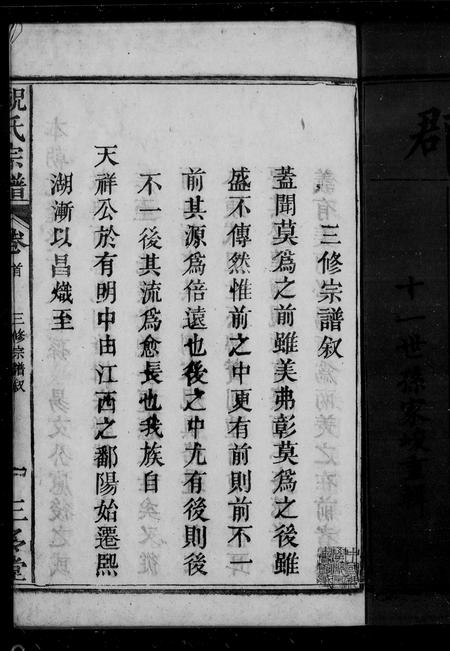 三修宗譜叙
蓋聞莫爲之前雖美弗彰莫爲之後雖
盛不傳然惟前之中更有前則前不一
前其源爲倍遠也後之中尤有後則後
不一後其流爲愈長也我族自
天祥公於有明中由江西之鄱陽始遷熈
湖漸以昌熾至
祝氏宗譜
卷首
三修宗譜叙
一
郡
十一世孫